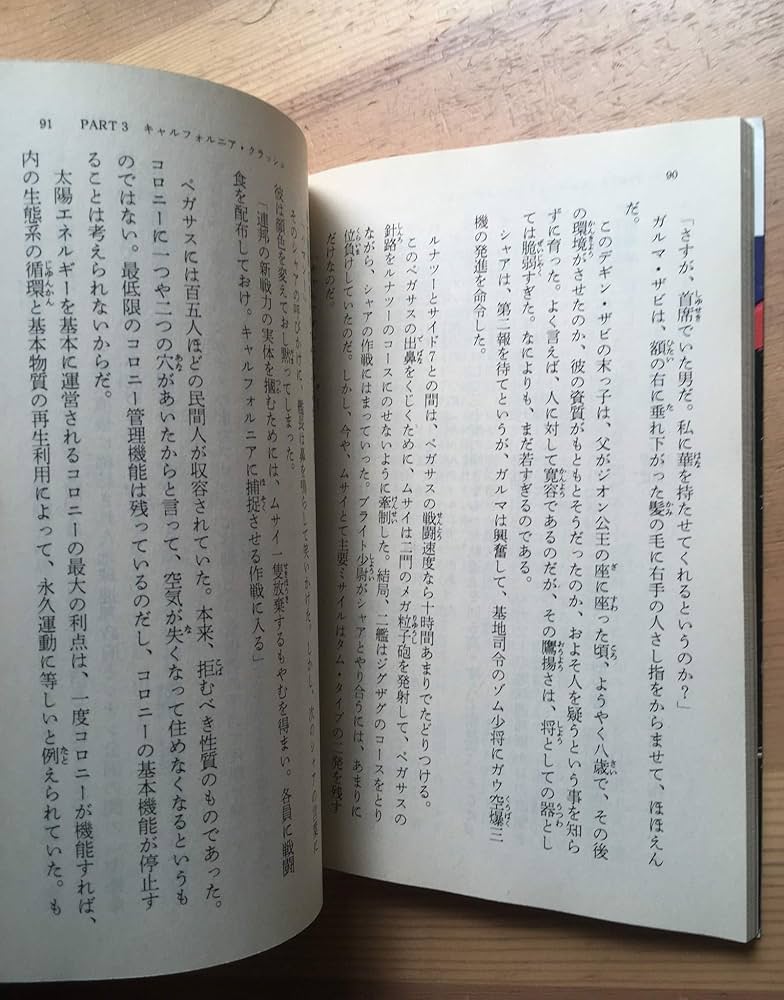 90
「さすが、首席でいた男だ。私に華を持たせてくれるというのか?」
ガルマ・ザビは、額の右に垂れ下がった髪の毛に右手の人さし指をからませて、ほほえん
だ。
このデギン・ザビの末っ子は、父がジオン公王の座に座った頃、ようやく八歳で、その後
の環境がさせたのか、彼の資質がもともとそうだったのか、およそ人を疑うという事を知ら
ずに育った。よく言えば、人に対して寛容であるのだが、その鷹揚さは、将としての器とし
ては脆弱すぎた。なによりも、まだ若すぎるのである。
シャアは、第二報を待てというが、ガルマは興奮して、基地司令のゾム少将にガウ空爆三
機の発進を命令した。
ルナツーとサイド7との間は、ペガサスの戦闘速度なら十時間あまりでたどりつける。
このペガサスの出鼻をくじくために、ムサイは二門のメガ粒子砲を発射して、ペガサスの
針路をルナツーのコースにのせないように牽制した。結局、二艦はジグザグのコースをとり
ながら、シャアの作戦にはまっていった。ブライト少尉がシャアとやり合うには、あまりに
位負けしていたのだ。しかし、今や、ムサイとて主要ミサイルはタム・タイプの二発を残す
だけなのだ。
91 PART3 キャルフォルニア・クラッシュ
そのシャアの呼びかけに、艦長は鼻を鳴らして笑いかけた。しかし、次のシャアの言葉に
彼は顔色を変えておし黙ってしまった。
「連邦の新戦力の実体を摑むためには、ムサイ一隻放棄するもやむを得まい。各員に戦闘
食を配布しておけ。キャルフォルニアに捕捉させる作戦に入る」
ペガサスには百五人ほどの民間人が収容されていた。本来、拒むべき性質のものであった。
コロニーに一つや二つの穴があいたからと言って、空気が失くなって住めなくなるというも
のではない。最低限のコロニー管理機能は残っているのだし、コロニーの基本機能が停止す
ることは考えられないからだ。
太陽エネルギーを基本に運営されるコロニーの最大の利点は、一度コロニーが機能すれば、
内の生態系の循環と基本物質の再生利用によって、永久運動に等しいと例えられていた。も